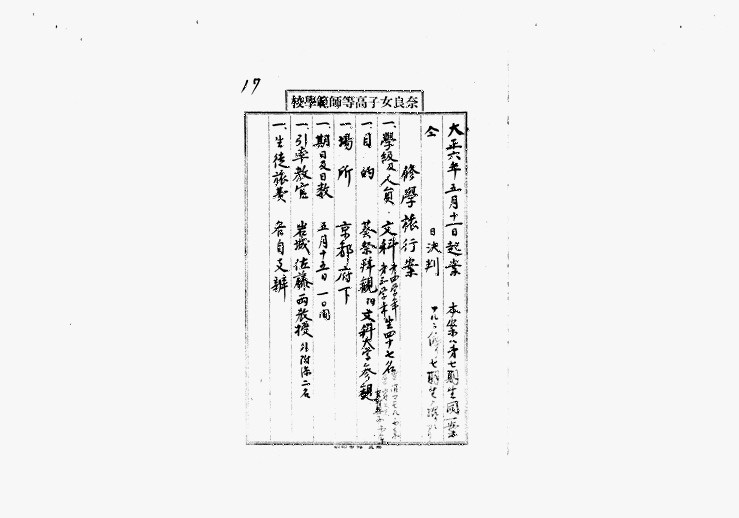 17
奈良女子高等師範學校
大正六年五月十一日起案
本案ハ第七期生同一案
仝 日決判
修學旅行案
一、學級及人員 文科 第四学年 第三学年 生四十七名
一、目的 葵祭拜観 附文科大学参観
一、場所 京都府下
一、期日及日数 五月十五日 一日間
一、引率教官 岩城佐藤両教授 外附添二名
一、生徒旅費 各自支辨